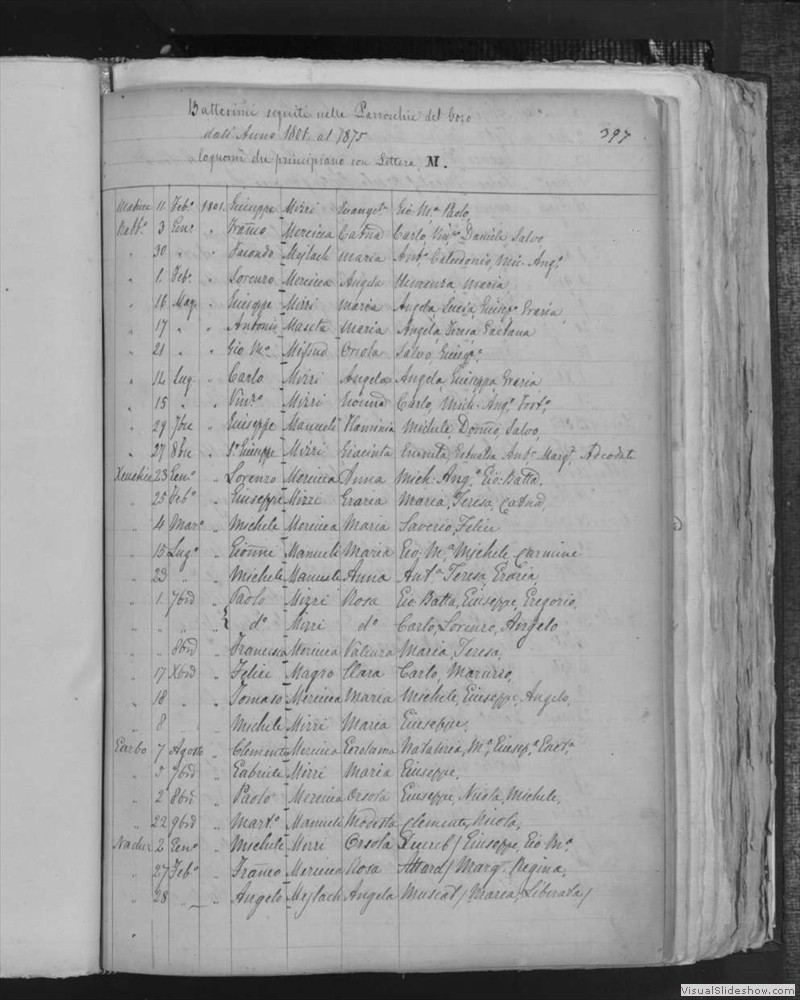 Battesimi seguiti nelle Parrochie del Gozo
dall'Anno 1801 al 1875
397
Cognomi che principiano con Lettera M.
Matrice 11 Feb.o 1801 Giuseppe Mizzi Evangel.a Gio M.a Paolo,
Rabb.o 3 Gen.o " Franco Mercieca Catna Carlo, Daniele Salvo
" 30 " " Mejlach Maria Ant.o Calcedonio, Mic. Ang.o
" 1 Feb.o " Lorenzo Mercieca Angela Maria
" 16 Mag. " Giuseppe Mizzi Maria Angela, Lucia, Giusep.a Grazia
" 17 " " Antonio Maria Angela Teresa Gaetana
" 21 " " Gio M.a Mifsud Orsola Salvo, Giusep.e
" 14 Lug " Carlo Mizzi Angela Angela, Giuseppa Grazia
" 15 " " Vinz.o Mizzi Carlo, Mich. Ang.o Fort.o
" 29 7bre " Giuseppe Manueli Flaminia Michele, Salvo,
" 27 8bre " Giuseppe Mizzi Giacinta Ant.a Marg.a Adeodata
Xeuchia 23 Gen.o " Lorenzo Mercieca Anna Mich. Ang.o Gio: Batta.
" 25 Feb.o " Giuseppe Mizzi Grazia Maria, Teresa, Catna,
" 4 Mar.o " Michele Mercieca Maria Saverio, Felice
" 15 Lug.o " Gionni Manueli Maria Gio: M.a Michele Carmine
" 23 " " Michele Manueli Anna Ant.a Teresa, Grazia,
" 1 7bre " Paolo Mizzi Rosa Gio Batta, Giuseppe, Gregorio,
" " " " { do Mizzi do Carlo, Lorenzo, Angelo
" " 8bre " Francesco Mercieca Maria, Teresa,
" 17 Xbre " Felice Magro Clara Carlo, Maurizio,
" 18 " " Tomaso Mercieca Maria Michele, Giuseppe, Angelo,
" 8 Michele Mizzi Maria Giuseppe,
Garbo 7 Agosto " Clemente Mercieca Gerolama M.a Giusep.a
" 5 7bre " Gabriele Mizzi Maria Giuseppe,
" 2 8bre " Paolo Mercieca Orsola Giuseppe, Nicola, Michele,
" 22 9bre " Mart.o Manueli Modesta Clemente, Nicola,
Nadur 2 Gen.o " Michele Mizzi Orsola Giuseppe, Gio M.a
" 27 Feb.o " Franco Mercieca Rosa Attard / Marg.a Regina,
" 28 " " Angelo Mejlach Angela Muscat / Maria, Liberata /
VisualSlideshow.com